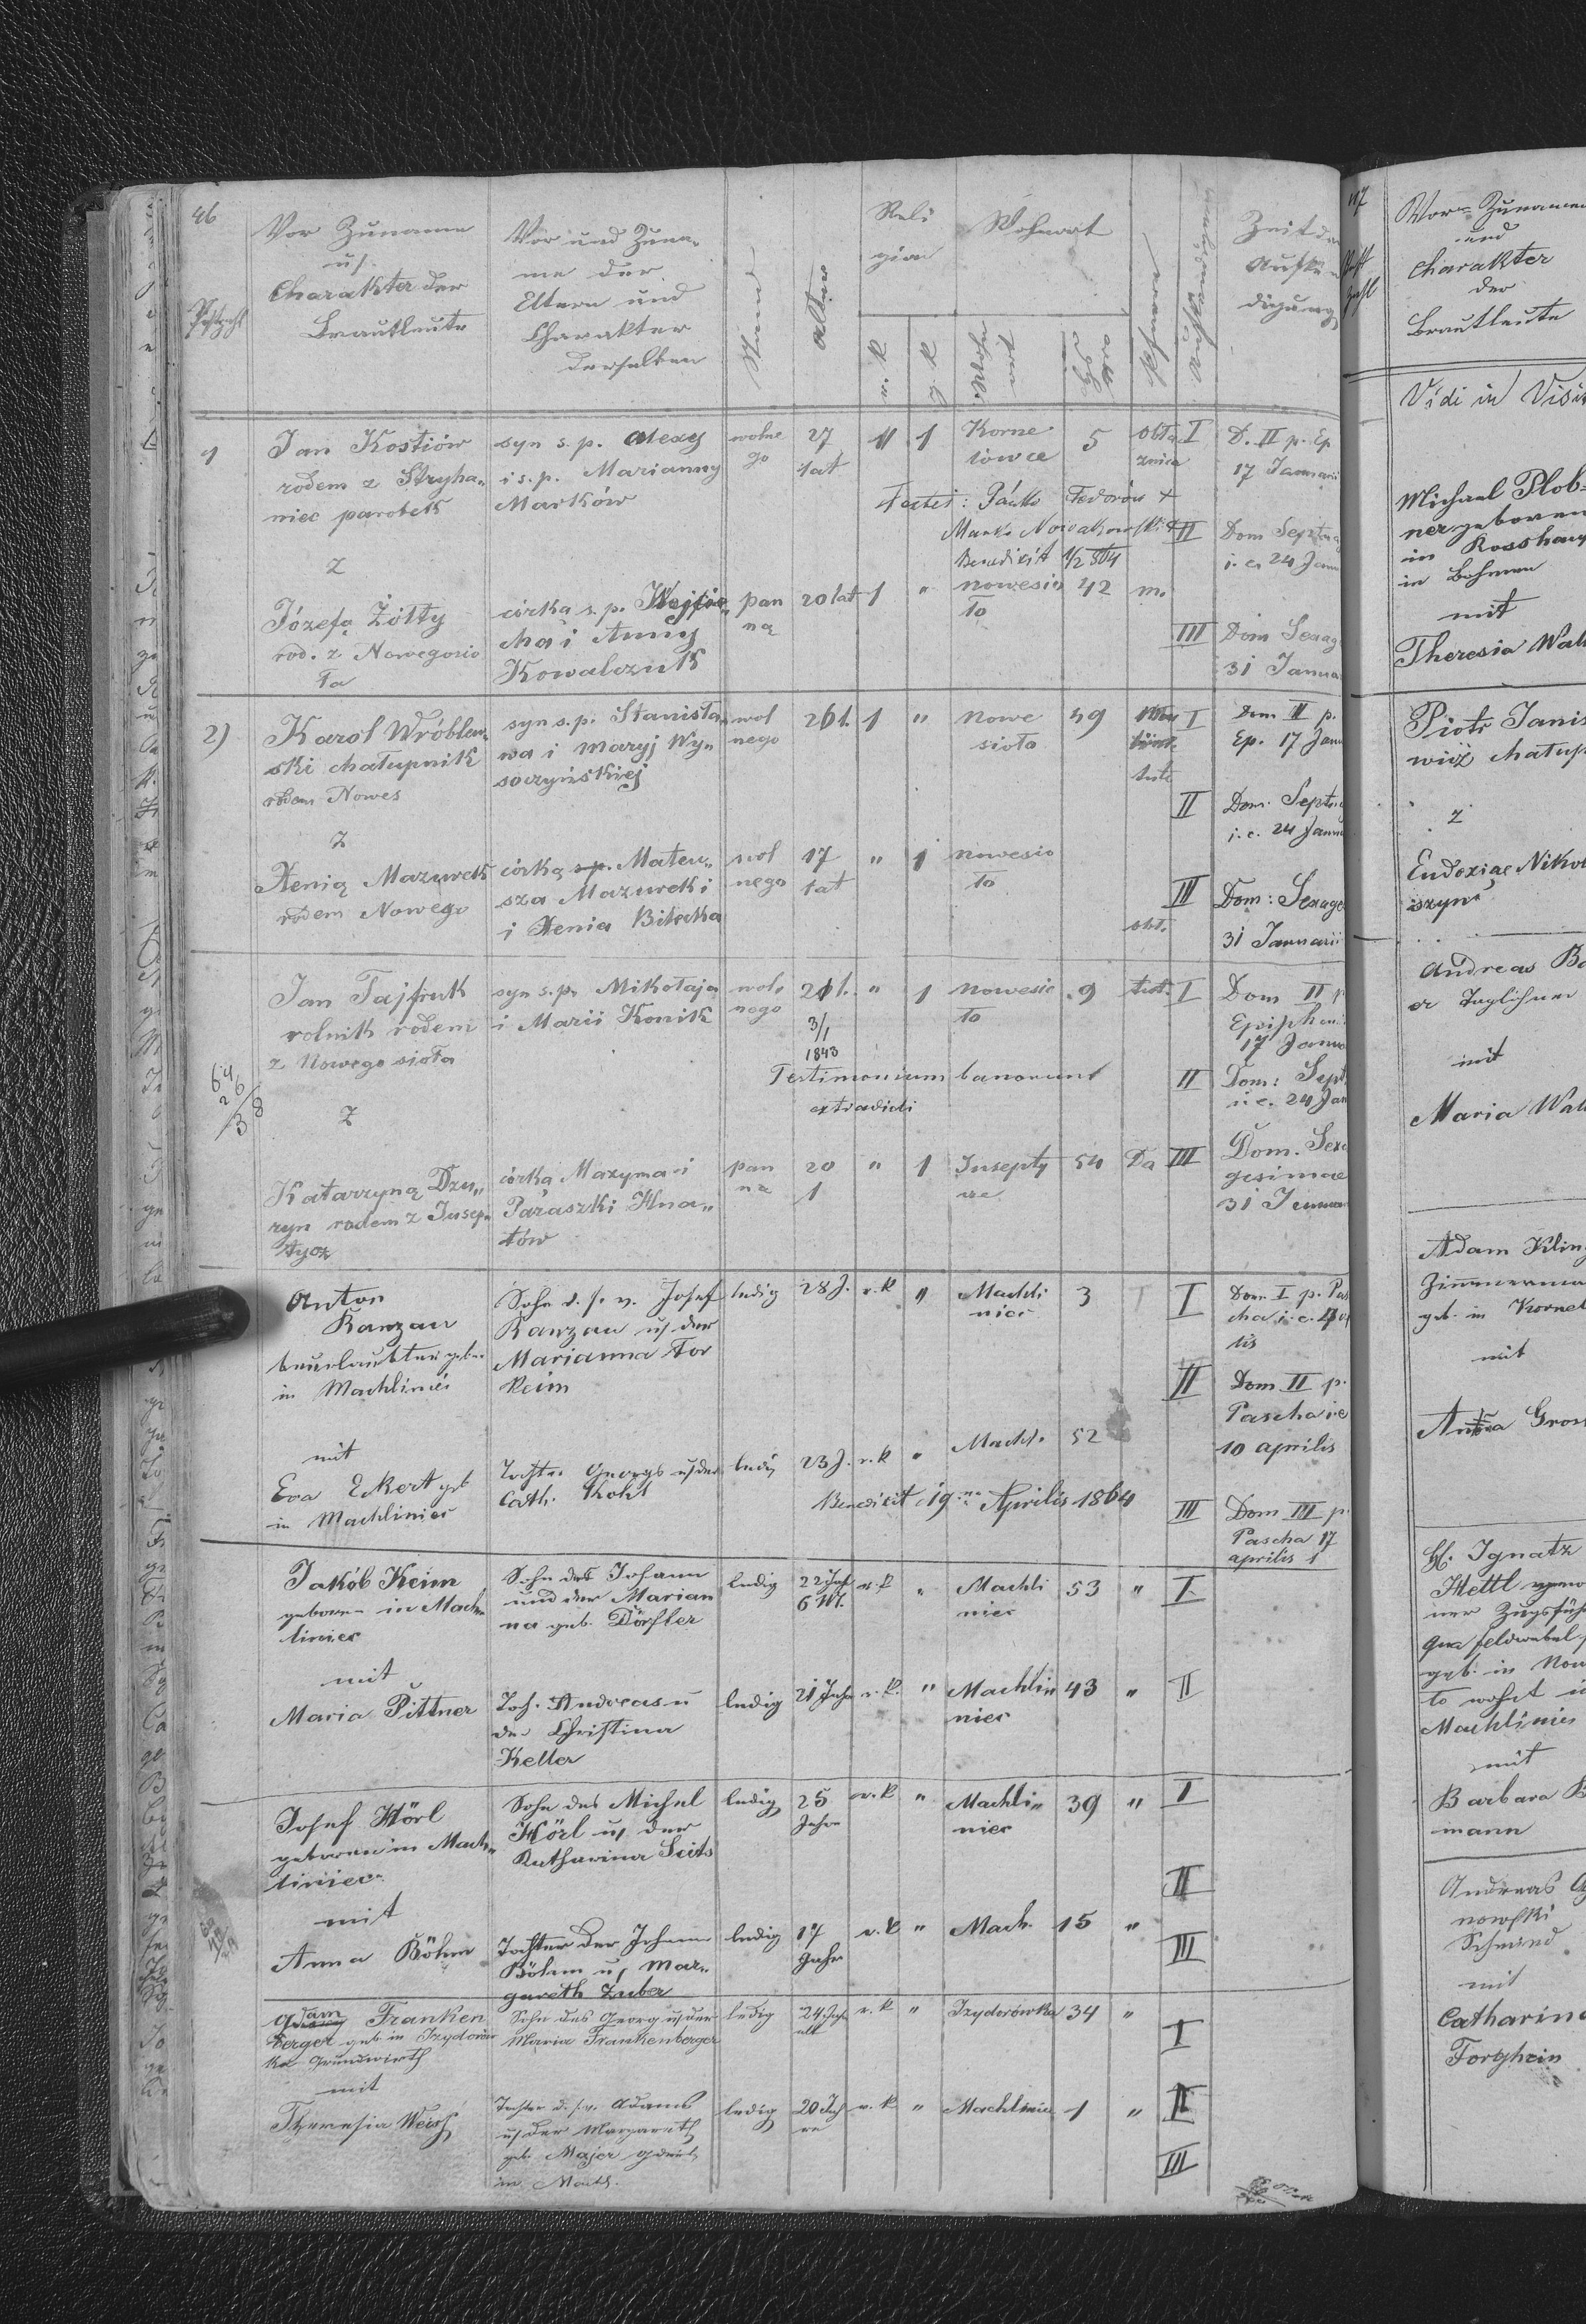 46
Postzahl
Vor Zuname
u/
Charakter der
Brautleute
Vor und Zuna-
me der
Eltern und
Charakter
derselben
Stand
Alter
Reli
gion
r. k
g. k
Wohnort
Wohn
ort
Pfarre
Zeit der
Aufkün
digung
1
Jan Kostiów
rodem z Stryha„
niec parobek
syn s. p. Alexy
i s. p. Marianny
Marków
wolne
go
27
lat
11
1
Korne
lowce
5
I
D. II p. Ep
17 Januari
Testes: Pańko Fedorów +
Marko Nowakowski +
Benedixit 1/2 864
II
Dom Septuag
i. e. 24 Janu
z
Józefą Żółty
rod. z Nowegosio
ła
córką s. p. Wojcie„
cha i Anny
Kowalczuk
pan
ną
20 lat
1
"
nowesio
ło
42
m.
III
Dom Sexag
31 Janua
2)
Karol Wróblew„
ski chałupnik
rodem Nowes
syn s. p. Stanisła„
wa i Maryj Wy„
soczyńskiej
wol
nego
26 l.
1
"
Nowe
sioło
49
I
Dom II p.
Ep. 17 Janu
II
Dom. Septu
i. e. 24 Janu
z
Xenią Mazurek
rodem Nowego
córką s. p. Mateu„
sza Mazurek i
i Xenia Bilecka
wol
nego
17
lat
"
1
nowesio
ło
III
Dom: Sexage
31 Januarii
Jan Tajfruk
rolnik rodem
z Nowego sioła
syn s. p. Mikołaja
i Marii Konik
wol.
nego
21 l.
3/1
1843
"
1
Nowesio
ło
9
I
Dom II p
Epiphani
17 Janua
Testimonium banorum
extradidi
II
Dom: Sept
i. e. 24 Jan
z
Katarzyną Dzu„
ryn rodem z Jusep„
tycz
córką Maxyma i
Paraszki Hna„
tów
pan
na
20
1
"
1
Jusepty
cze
54
Da
III
Dom. Sexa
gesimae
31 Januar
Anton
Kanzau
beurlaubter geb.
in Machliniec
Sohn d. s. v. Josef
Kanzau u/ der
Marianna For
keim
ledig
28 J.
r. k
"
Machli
niec
3
I
Dom I p. Pas
cha i. e. 4 ap
lis
II
Dom II p.
Pascha i e
10 aprilis
mit
Eva Eckert geb
in Machliniec
Tochter Georgs u/ der
Cath. Kohl
ledig
23 J.
r. k
"
Machl.
52
Benedixit 19 Aprilis 1864
III
Dom III p.
Pascha 17
aprilis 1
Jakób Keim
geboren in Mach„
liniec
Sohn des Johann
und der Marian
na geb. Dörfler
ledig
22 Jah
6 M.
r. k
"
Machli
niec
53
"
I
mit
Maria Pittner
Toch. Andreas u
der Christina
Keller
ledig
21 Jahr
r. k.
"
Machlin
niec
43
"
II
Josef Hörl
geboren in Mach„
liniec
Sohn des Michel
Hörl u/ der
Katharina Seits
ledig
25
Jahre
r. k
"
Machli„
niec
39
"
I
II
mit
Anna Böhm
Tochter der Johann
Böhm u/ Mar„
gareth Zuber
ledig
17
Jahr
r. k
"
Mach.
15
"
III
Adam Franken
berger geb in Izydorów
ka Grundwirth
Sohn des Georg u/ der
Maria Frankenberger
ledig
24 Jahr
alt
r. k
"
Izydorówka
34
"
I
mit
Theresia Weiss
Tochter d. s. v. Adams
u/ der Margareth
geb. Majer
in Mach.
ledig
20 Jah
re
r. k
"
Machliniec
1
"
II
III
Vor- Zunamen
und
Charakter
der
Brautleute
Vidi in Visi
Michael Plob-
ner geboren
in Rosshaup
in Böhmen
mit
Theresia Wal
Piotr Janis
wicz chałup
z
Eudoxiae Nikol
iszyn
Andreas Ba
er Taglöhner
mit
Maria Wal
Adam Kling
Zimmerman
geb. in Kornel
mit
Anna Gros
H. Ignatz
Hettl
ner Zugsfüh
qua feldwebel
geb. in Now
to wohnt in
Machliniec
mit
Barbara B
mann
Andreas G
nowski
Schmied
mit
Catharina
Forghein